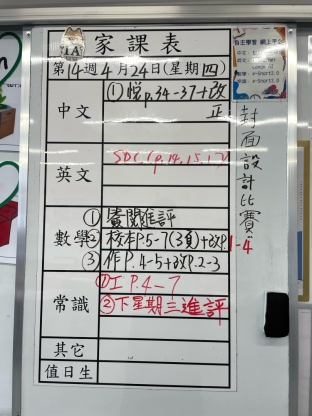 1A
家課表
第14週4月24日(星期四)
中文
①悅p.34-37+改
正
英文
SDC(p.14,15,17)
數學
①賽閱進評
②校本P.5-7(3頁)+改P.1-4
③作P.4-5+改P.2-3
常識
①工P.4-7
②下星期三進評
其它
值日生
封面設計比賽
自主學習 網上平台